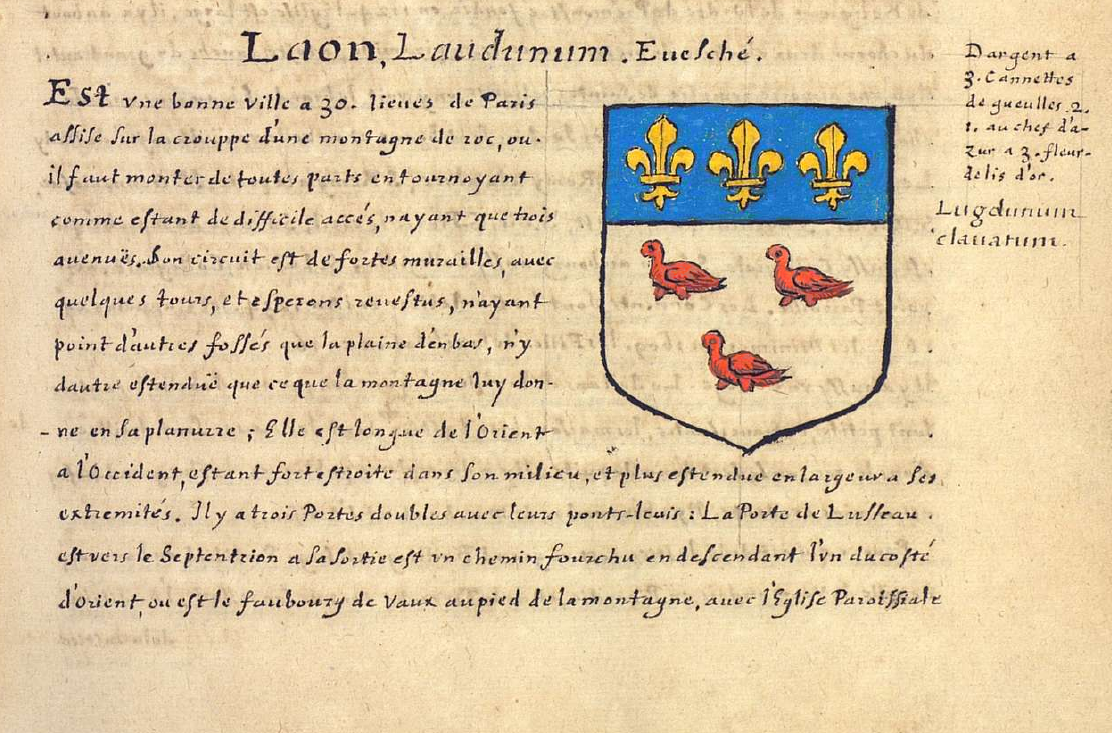 Laon, Laudunum. Euesché.
Est vne bonne Ville a 30. lieues de Paris
assise sur la crouppe d'une montagne de roc, ou
il faut monter de toutes parts en tournoyant
comme estant de difficile accés, nayant que trois
auenuës. Son circuit est de fortes murailles, auec
quelques tours, et esperons reuestus, n'ayant
point d'autres fossés que la plaine d'enbas, n'y
dautre estenduë que ce que la montagne luy don-
ne en sa planure; Elle est longue de l'Orient
a l'Occident, estant fort estroite dans son milieu, et plus estendue en largeur a ses
extremités. Il y a trois Portes doubles auec leurs ponts-leuis: La Porte de Lusseau.
est vers le Septentrion a sa sortie est vn chemin fourchu en descendant l'vn du costé
d'Orient, ou est le faubourg de Vaux au pied de la montagne, auec l'Eglise Paroissiale
Dargent a
3. Cannettes
de gueulles 2.
1. au chef d'a-
zur a 3. fleur-
delis d'or.
Lugdunum
clauatum.